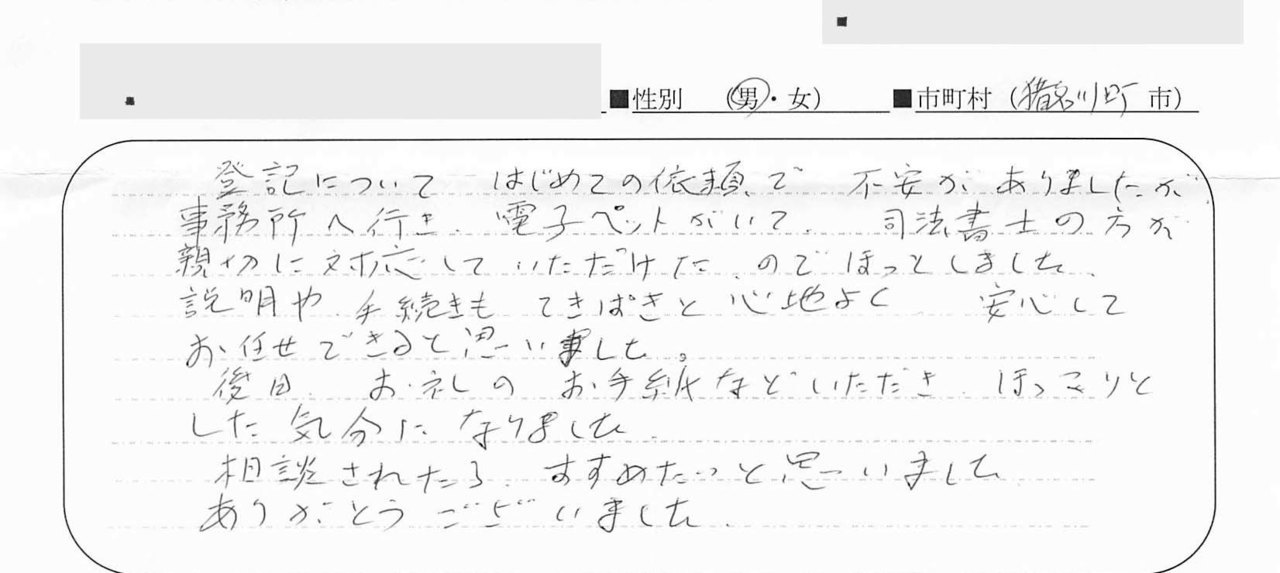 ■性別 (男・女) ■市町村 (猪名川町 市)
登記について はじめての依頼で 不安がありましたが
事務所へ行き、電子ペットがいて、 司法書士の方が
親切に対応していただけた、のでほっとしました、
説明や手続きも てきぱきと心地よく 安心して
お任せできると思いました。
後日、お礼の お手紙などいただき ほっこりと
した気分になりました、
相談されたら、すすめたいと思いました
ありがとうございました、